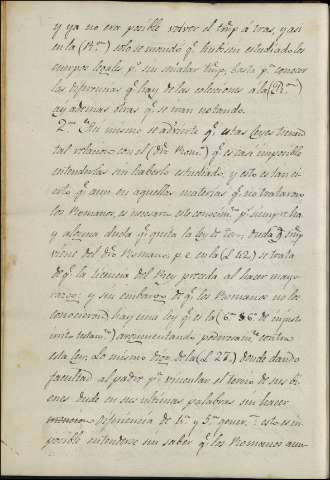 y ya no era posible volver el tmp.º á tras, y asi
en la (R.n) solo se mandó q.e hubiesen estudiado los
cuerpos legales, p.º sin señalar tmp.º, basta p.ª conocer
las diferencias q.e hay de las soluciones a la (R.n)
ay ademas otras q.e se iran notando.
2.ª Asi mismo se advierte q.e estas Leyes tienen
tal relacion con el (dro Rom.º) q.e es casi imposible
entenderlas sin haberlo estudiado; y esto es tan ci-
erto q.e aun en aquellas materias q.e no trataron
los Romanos, es necesario este conocim.to p.r q.e siempre hay
y alguna duda q.e quita la ley de Toro, duda q.e
viene del dro Romano. p. e. en la (L 42) se trata
de q.e la licencia del Rey preceda al hacer mayo-
razgo; y sin embargo de q.e los Romanos no los
conocieron hay una ley q.e es la (6.ª
testam.) argumentando poderosam.te contra
esta Ley. Lo mismo digo de la (L 27) donde dando
facultad al padre p.ª vincular el tercio de sus bi-
enes dude en sus ultimas palabras sin hacer
diferencia de 4.º y 5.º gener.n: esto es im-
posible entenderse sin saber q.e los Romanos aun